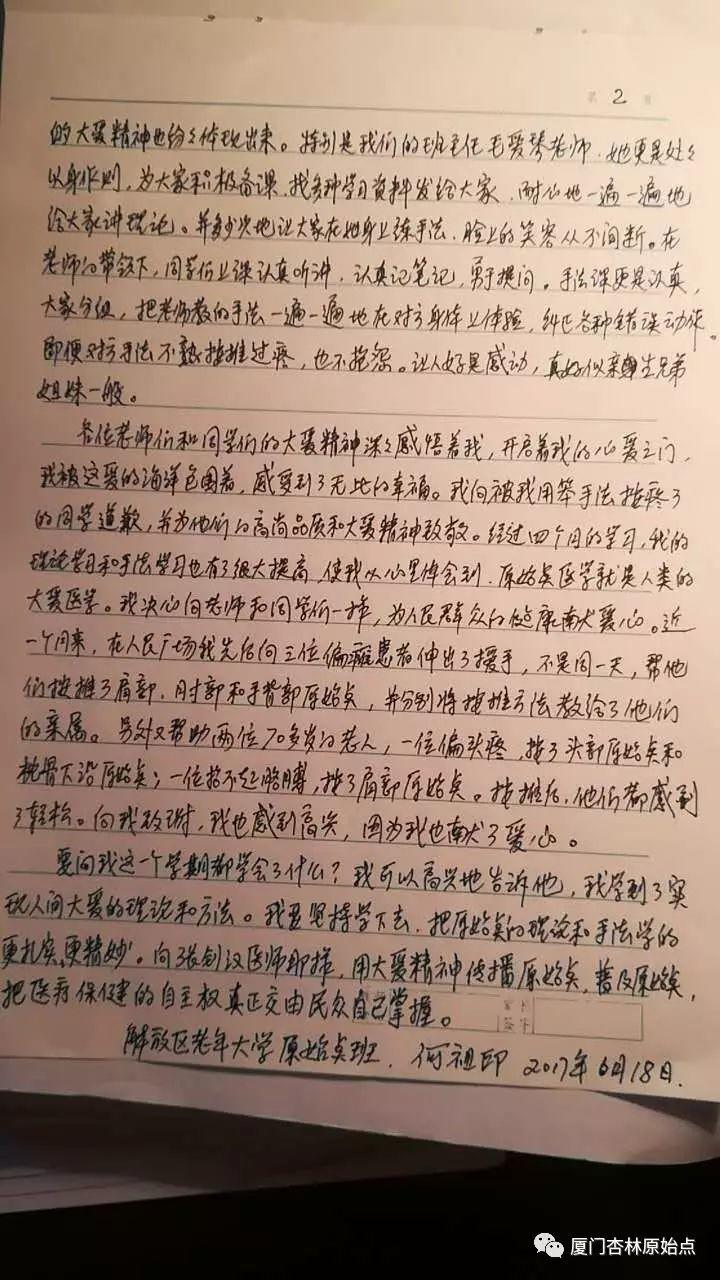 第 2 页
的大爱精神也纷纷体现出来。特别是我们的班主任毛爱琴老师，她更是处处
以身作则，为大家积极备课，找多种学习资料发给大家，耐心地一遍一遍地
给大家讲理论。并多次地让大家在她身上练手法，脸上的笑容从不间断。在
老师的带领下，同学们上课认真听讲，认真记笔记，勇于提问。手法课更是认真，
大家分组，把老师教的手法一遍一遍地在对方身体上体验，纠正各种错误动作。
即便对方手法不熟按推过疼，也不抱怨。让人好是感动，真好似亲生兄弟
姐妹一般。
各位老师们和同学们的大爱精神深深感悟着我，开启着我的心爱之门，
我被这爱的海洋包围着，感受到了无比的幸福。我向被我用笨手法按疼了
的同学道歉，并为他们的高尚品质和大爱精神致敬。经过四个月的学习，我的
理论学习和手法学习也有了很大提高，使我从心里体会到，原始点医学就是人类的
大爱医学。我决心向老师和同学们一样，为人民群众的健康献爱心。近
一个月来，在人民广场我先后向三位偏瘫患者伸出了援手，不是同一天，帮他
们按推了肩部、肘部和手背部原始点，并分别将按推方法教给了他们
的亲属。另外又帮助两位70多岁的老人，一位偏头疼，按了头部原始点和
枕骨下沿原始点；一位抬不起胳膊，按了肩部原始点。按推后，他们都感到
了轻松。向我致谢，我也感到高兴，因为我也献了爱心。
要问我这一个学期都学会了什么？我可以高兴地告诉他，我学到了实
现人间大爱的理论和方法。我要坚持学下去，把原始点的理论和手法学的
更扎实，更精妙。向张钊汉医师那样，用大爱精神传播原始点，普及原始点，
把医疗保健的自主权真正交由民众自己掌握。
签字
解放区老年大学原始点班，何祖印 2017年6月18日.
厦门杏林原始点